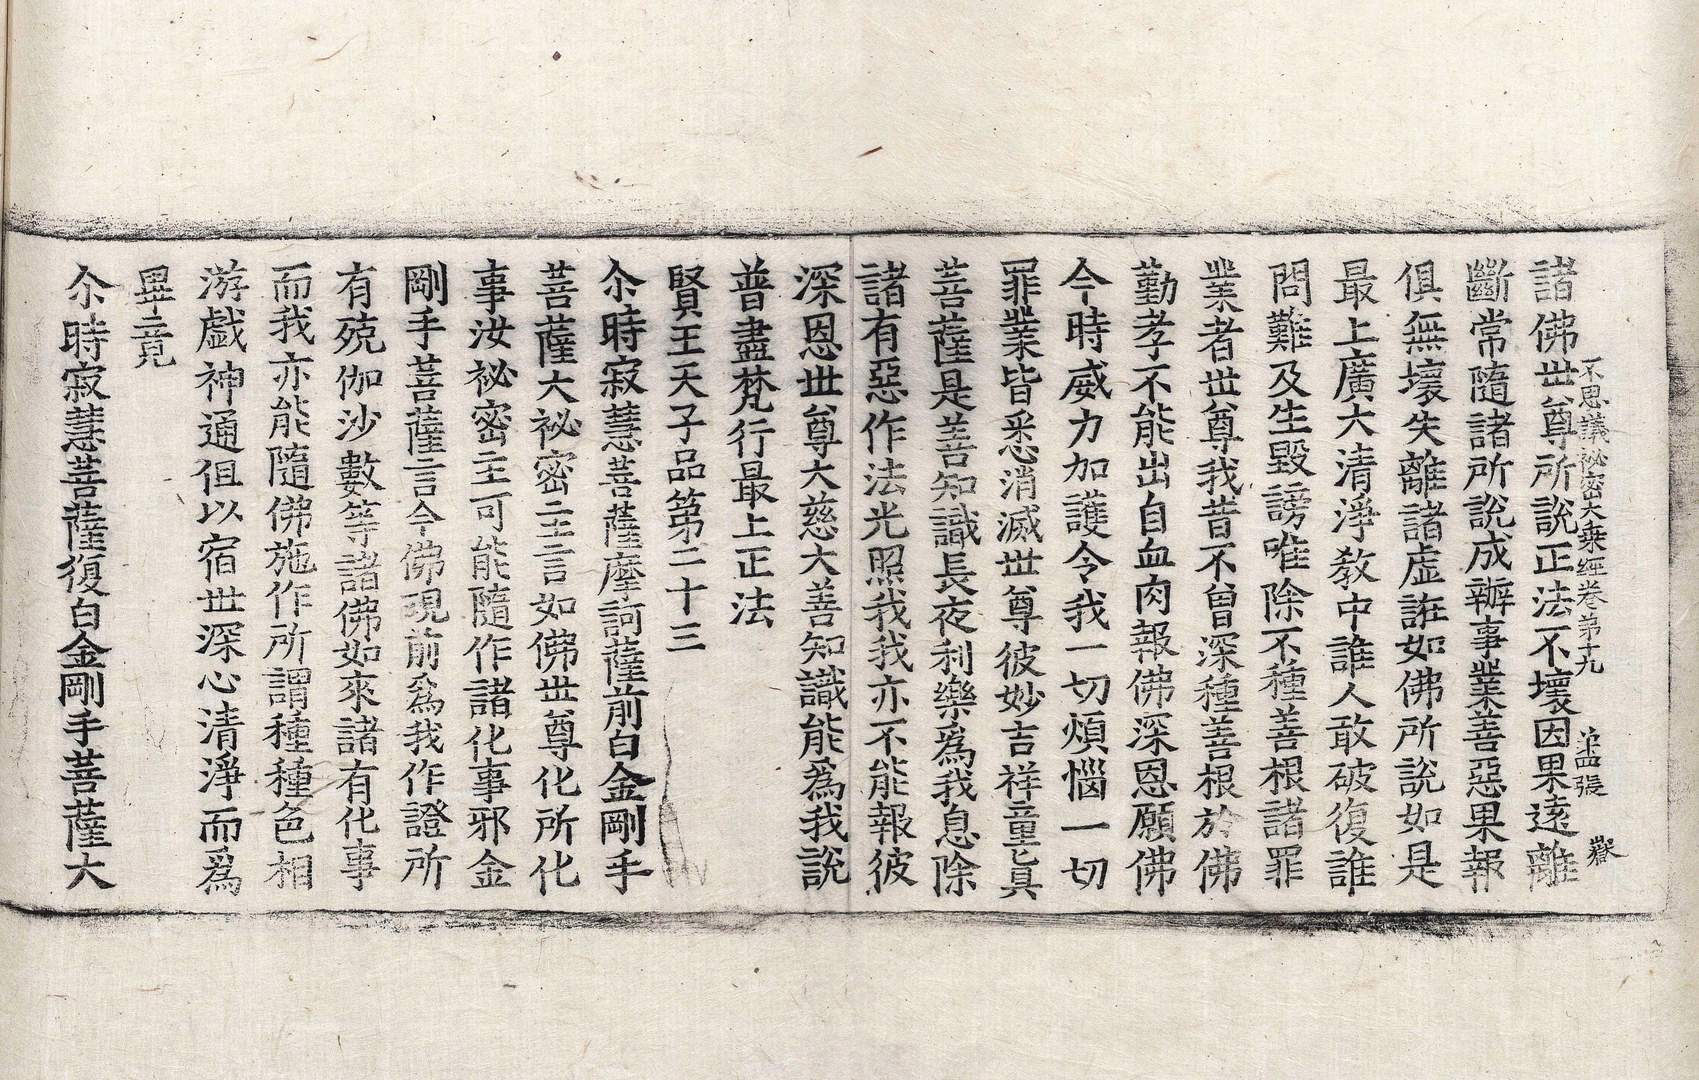 不思議祕密大乗經卷第十九 苐四張
諸佛世尊所說正法不壞因果遠離
斷常隨諸所說成辦事業善惡果報
俱無壞失離諸虛誑如佛所說如是
最上廣大清淨教中誰人敢破復誰
問難及生毀謗唯除不種善根諸罪
業者世尊我昔不曾深種善根於佛
勤孝不能出自血肉報佛深恩願佛
今時威力加護令我一切煩惱一切
罪業皆悉消滅世尊彼妙吉祥童真
菩薩是善知識長夜利樂爲我息除
諸有惡作法光照我我亦不能報彼
深恩世尊大慈大善知識能爲我說
普盡梵行最上正法
賢王天子品第二十三
尒時寂慧菩薩摩訶薩前白金剛手
菩薩大祕密主言如佛世尊化所化
事汝祕密主可能隨作諸化事邪金
剛手菩薩言今佛現前爲我作證所
有殑伽沙數等諸佛如來諸有化事
而我亦能隨佛施作所謂種種色相
游戲神通但以宿世深心清淨而爲
畢竟
尒時寂慧菩薩復白金剛手菩薩大